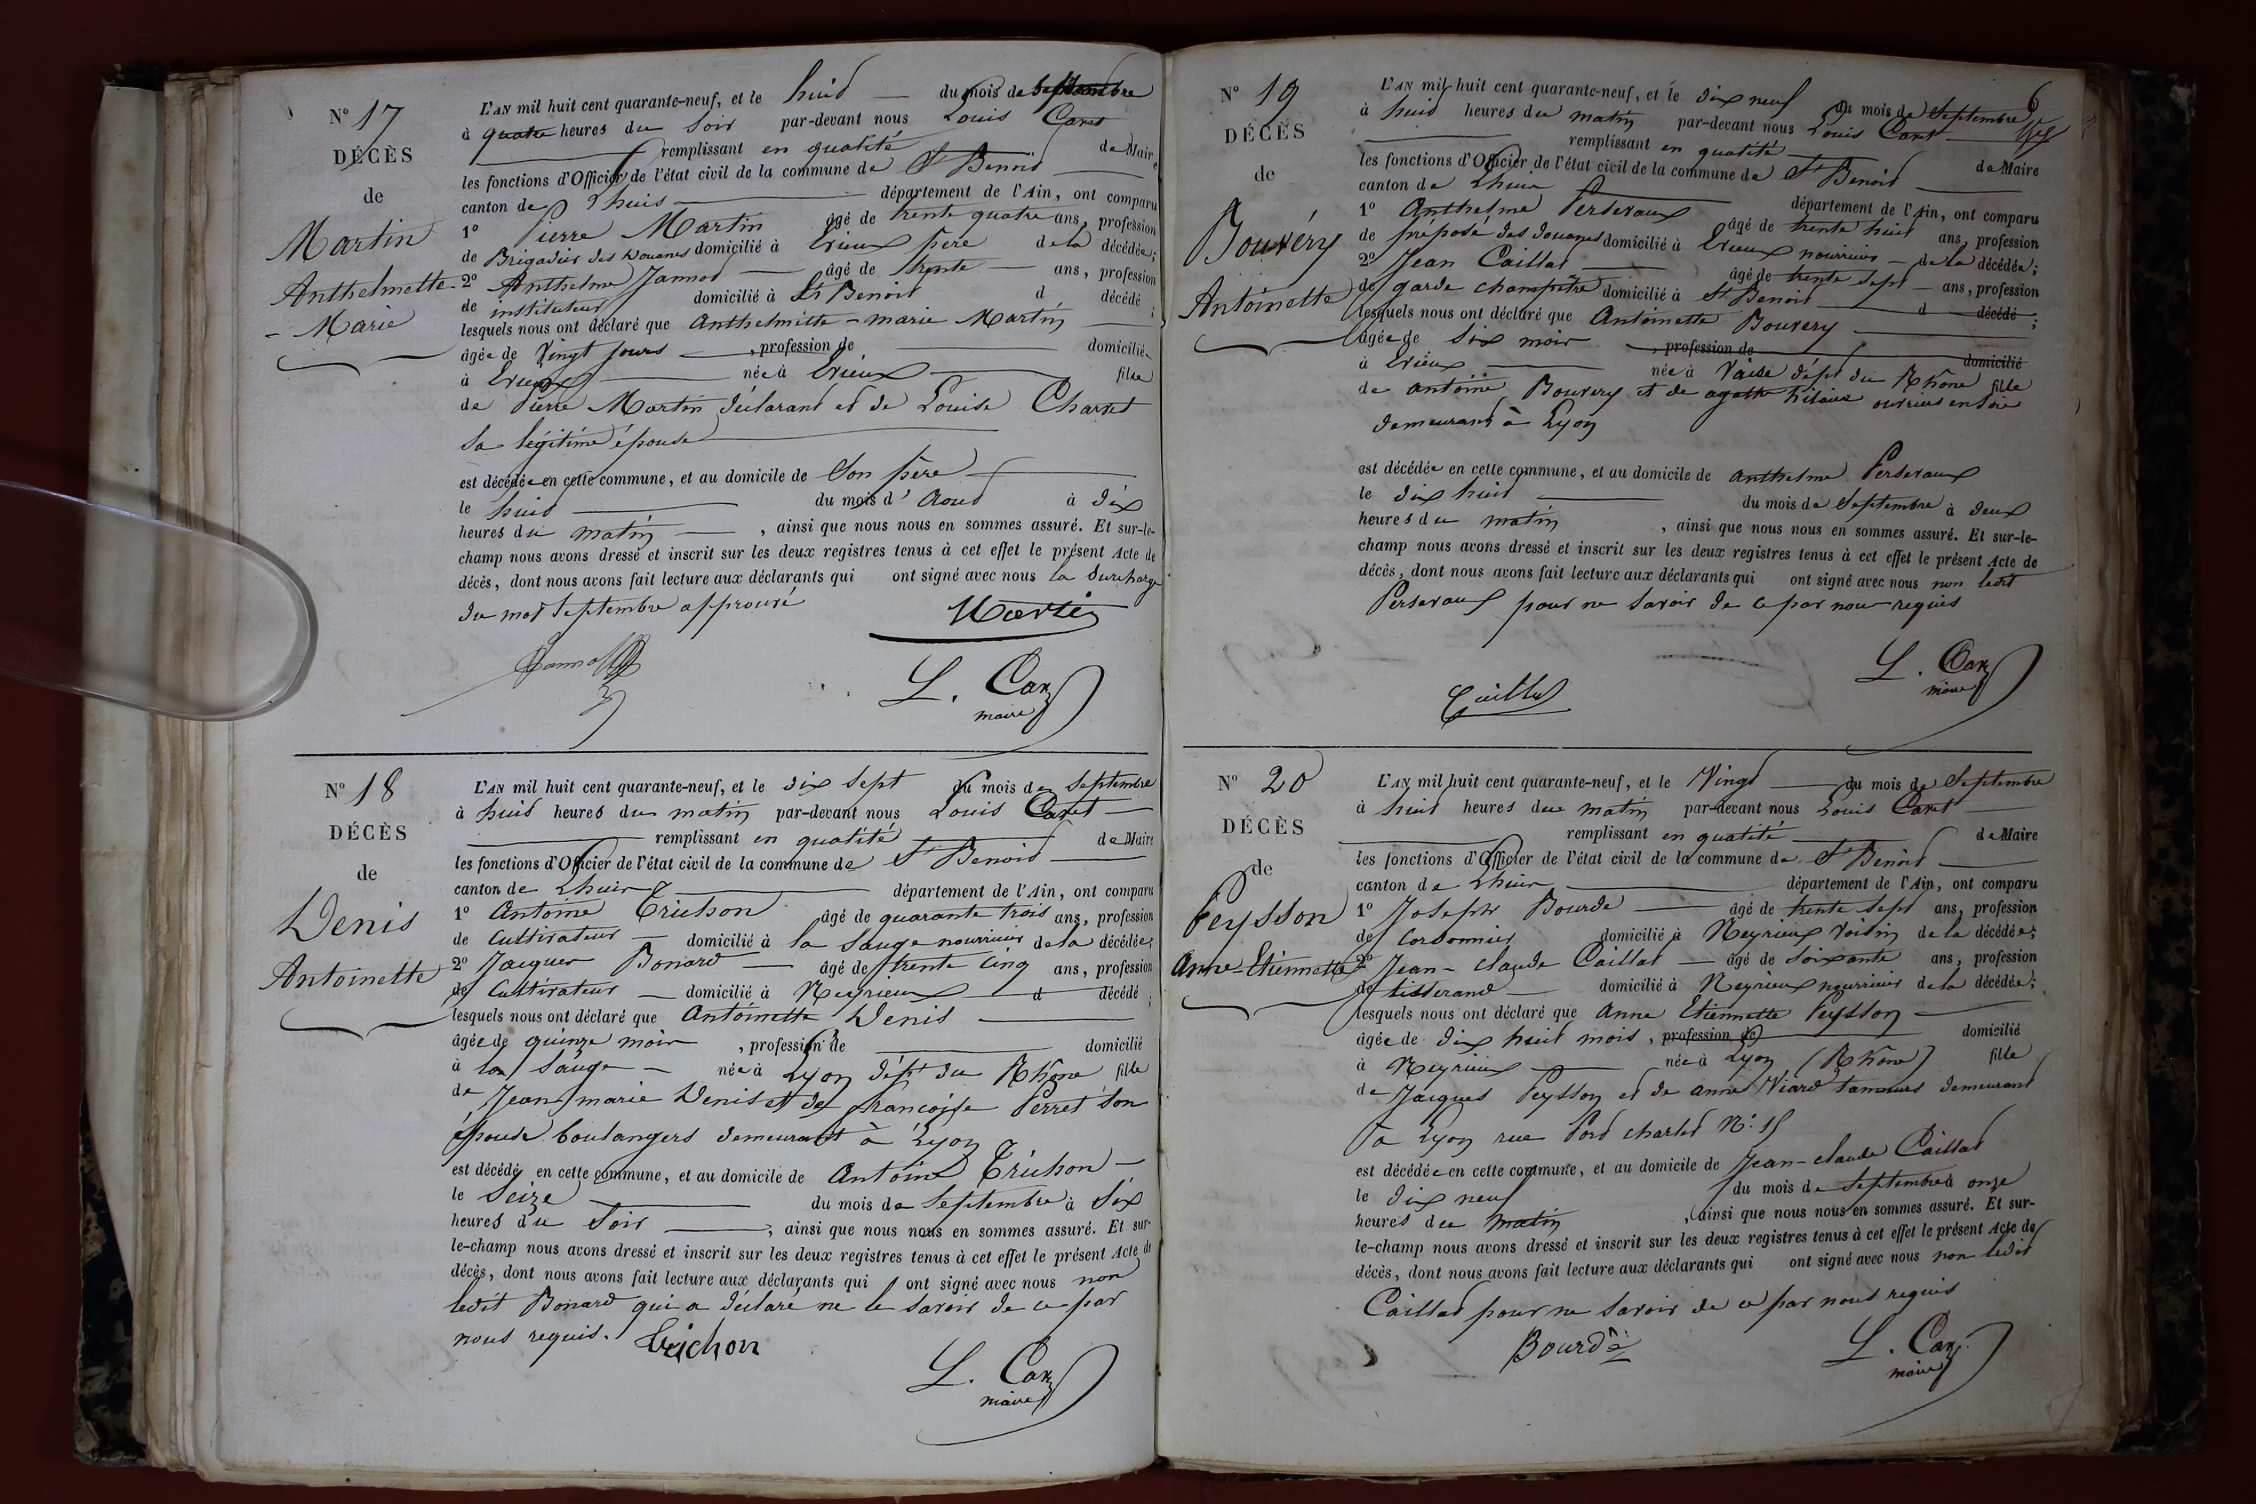 N° 17
DÉCÈS
de
Martin
Anthelmette
- Marie
L'AN mil huit cent quarante-neuf, et le huit du mois de septembre
à quatre heures du soir par-devant nous Louis Caret
remplissant en qualité de Maire
les fonctions d'Officier de l'état civil de la commune de St Benoit
canton de Lhuis département de l'Ain, ont comparu
1° Pierre Martin âgé de trente quatre ans, profession
de Brigadier des Douanes domicilié à Evieux père de la décédée;
2° Anthelme Jannot âgé de trente ans, profession
de instituteur domicilié à St Benoit d décédé ;
lesquels nous ont déclaré que Anthelmette - marie Martin
âgée de Vingt jours , profession de domiciliée
à Evieux née à Evieux fille
de Pierre Martin déclarant et de Louise Charvet
sa légitime épouse
est décédée en cette commune, et au domicile de son père
le huit du mois d'Aout à dix
heures du matin , ainsi que nous nous en sommes assuré. Et sur-le-
champ nous avons dressé et inscrit sur les deux registres tenus à cet effet le présent Acte de
décès, dont nous avons fait lecture aux déclarants qui ont signé avec nous la surcharge
du mot septembre approuvé
Martin
Jannot
L. Caret
maire
N° 18
DÉCÈS
de
Denis
Antoinette
L'AN mil huit cent quarante-neuf, et le dix sept du mois de Septembre
à huit heures du matin par-devant nous Louis Caret
remplissant en qualité de Maire
les fonctions d'Officier de l'état civil de la commune de St Benoit
canton de Lhuis département de l'Ain, ont comparu
1° Antoine Trichon âgé de quarante trois ans, profession
de Cultivateur domicilié à la Sauge nourricier de la décédée;
2° Jacques Bonard âgé de trente cinq ans, profession
de Cultivateur domicilié à Neyrieux d décédé ;
lesquels nous ont déclaré que Antoinette Denis
âgée de quinze mois , profession de domicilié
à la Sauge née à Lyon dépt du Rhône fille
de Jean marie Denis et de françoise Perret son
épouse boulangers demeurant à Lyon
est décédée en cette commune, et au domicile de Antoine Trichon
le Seize du mois de Septembre à Six
heures du Soir , ainsi que nous nous en sommes assuré. Et sur-
le-champ nous avons dressé et inscrit sur les deux registres tenus à cet effet le présent Acte de
décès, dont nous avons fait lecture aux déclarants qui ont signé avec nous non
ledit Bonard qui a déclaré ne le savoir de ce par
nous requis.
Trichon
L. Caret
maire
6
N° 19
DÉCÈS
de
Bouvery
Antoinette
L'AN mil huit cent quarante-neuf, et le dix neuf du mois de Septembre
à huit heures du matin par-devant nous Louis Caret
remplissant en qualité de Maire
les fonctions d'Officier de l'état civil de la commune de St Benoit
canton de Lhuis département de l'Ain, ont comparu
1° Anthelme Perseraux âgé de trente huit ans, profession
de préposé des douanes domicilié à Evieux nourricier de la décédée;
2° Jean Caillat âgé de trente sept ans, profession
de garde champêtre domicilié à St Benoit d décédé ;
lesquels nous ont déclaré que Antoinette Bouvery
âgée de six mois , profession de domicilié
à Evieux née à Vaise dépt du Rhône fille
de antoine Bouvery et de agathe hilaire ouvriers en soie
demeurant à Lyon
est décédée en cette commune, et au domicile de anthelme Perseraux
le dix huit du mois de Septembre à deux
heures du matin , ainsi que nous nous en sommes assuré. Et sur-le-
champ nous avons dressé et inscrit sur les deux registres tenus à cet effet le présent Acte de
décès, dont nous avons fait lecture aux déclarants qui ont signé avec nous non ledit
Perseraux pour ne savoir de ce par nous requis
Caillat
L. Caret
maire
N° 20
DÉCÈS
de
Peysson
Anne-Etiennette
L'AN mil huit cent quarante-neuf, et le Vingt du mois de Septembre
à huit heures du matin par-devant nous Louis Caret
remplissant en qualité de Maire
les fonctions d'Officier de l'état civil de la commune de St Benoit
canton de Lhuis département de l'Ain, ont comparu
1° Joseph Bourde âgé de trente sept ans, profession
de Cordonnier domicilié à Neyrieux voisin de la décédée;
2° Jean-claude Caillat âgé de soixante ans, profession
de tisserand domicilié à Neyrieux nourricier de la décédée;
lesquels nous ont déclaré que Anne Etiennette Peysson
âgée de dix huit mois , profession de domicilié
à Neyrieux née à Lyon (Rhône) fille
de Jacques Peysson et de anne Viard tanneurs demeurant
à Lyon rue Port charlet N° 15
est décédée en cette commune, et au domicile de Jean-claude Caillat
le dix neuf du mois de Septembre à onze
heures du matin , ainsi que nous nous en sommes assuré. Et sur-
le-champ nous avons dressé et inscrit sur les deux registres tenus à cet effet le présent Acte de
décès, dont nous avons fait lecture aux déclarants qui ont signé avec nous non ledit
Caillat pour ne savoir de ce par nous requis
Bourde
L. Caret
maire